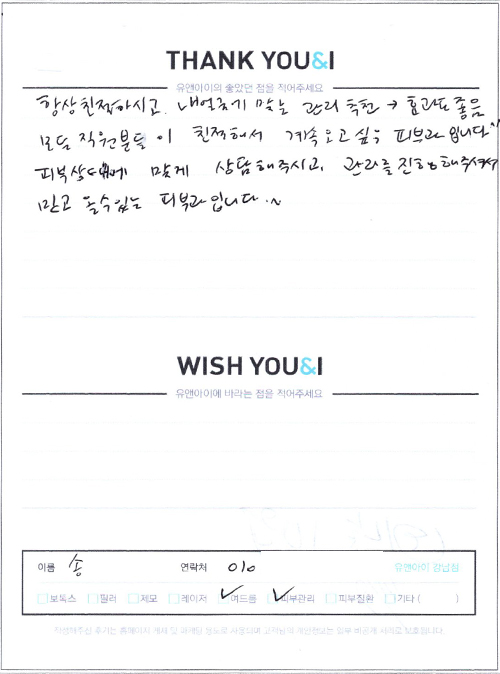 THANK YOU&I
유앤아이의 좋았던 점을 적어주세요
항상 친절하시고, 내 얼굴에 맞는 관리 추천 → 효과도 좋음
모든 직원분들이 친절해서 계속 오고 싶은 피부과입니다^^
피부상태에 맞게 상담해주시고, 관리를 진행해주셔서
믿고 올 수 있는 피부과입니다.~
WISH YOU&I
유앤아이에 바라는 점을 적어주세요
이름 송 연락처 010 유앤아이 강남점
보톡스 필러 제모 레이저 여드름 피부관리 피부질환 기타 ( )
작성해주신 후기는 홈페이지 게재 및 마케팅 용도로 사용되며 고객님의 개인정보는 일부 비공개 처리로 보호됩니다.